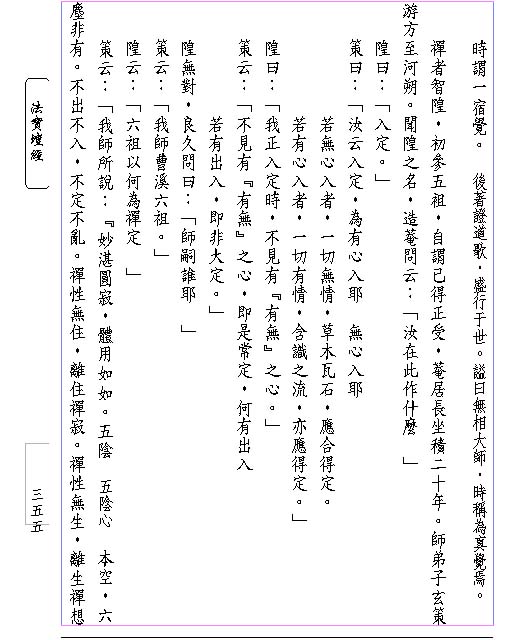 時謂一宿覺。　後著證道歌，盛行于世。謚曰無相大師，時稱為真覺焉。
禪者智隍，初參五祖，自謂已得正受，菴居長坐積二十年。師弟子玄策
游方至河朔。聞隍之名，造菴問云：「汝在此作什麼　」
隍曰：「入定。」
策曰：「汝云入定，為有心入耶　無心入耶
若無心入者，一切無情，草木瓦石，應合得定。
若有心入者，一切有情，含識之流，亦應得定。」
隍曰：「我正入定時，不見有『有無』之心。」
策云：「不見有『有無』之心，即是常定，何有出入
若有出入，即非大定。」
隍無對，良久問曰：「師嗣誰耶　」
策云：「我師曹溪六祖。」
隍云：「六祖以何為禪定　」
策云：「我師所說：『妙湛圓寂，體用如如。五陰　五陰心　本空，六
塵非有。不出不入，不定不亂。禪性無住，離住禪寂。禪性無生，離生禪想
法寶壇經
三五五